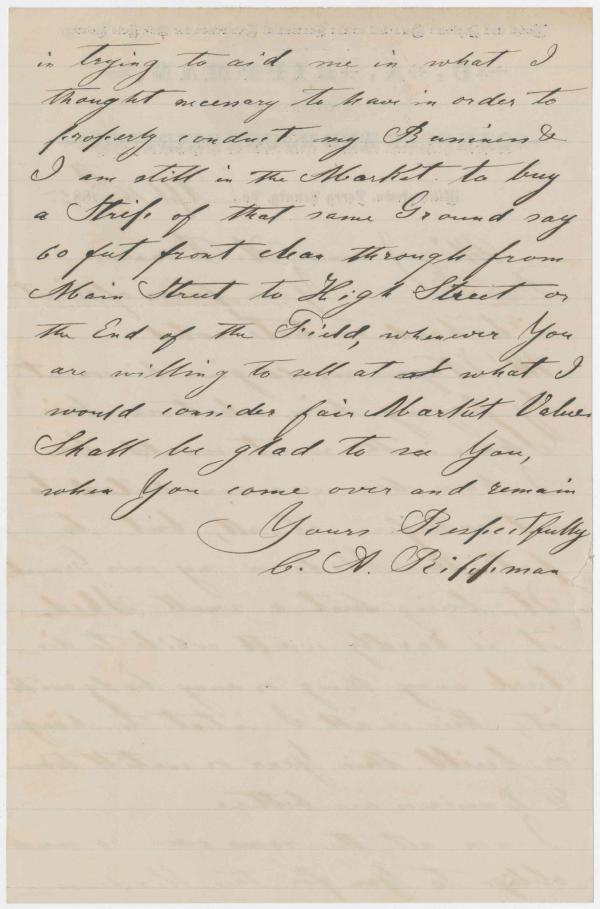 in trying to aid me in what I
thought necessary to have in order to
properly conduct my Business &
I am still in the Market to buy
a Strip of that same Ground say
60 feet front clean through from
Main Street to High Street or
the End of the Field, whenever You
are willing to sell at what I
would consider fair Market Values
Shall be glad to see You,
when You come over and remain
Yours Respectfully
C. A. Rippman